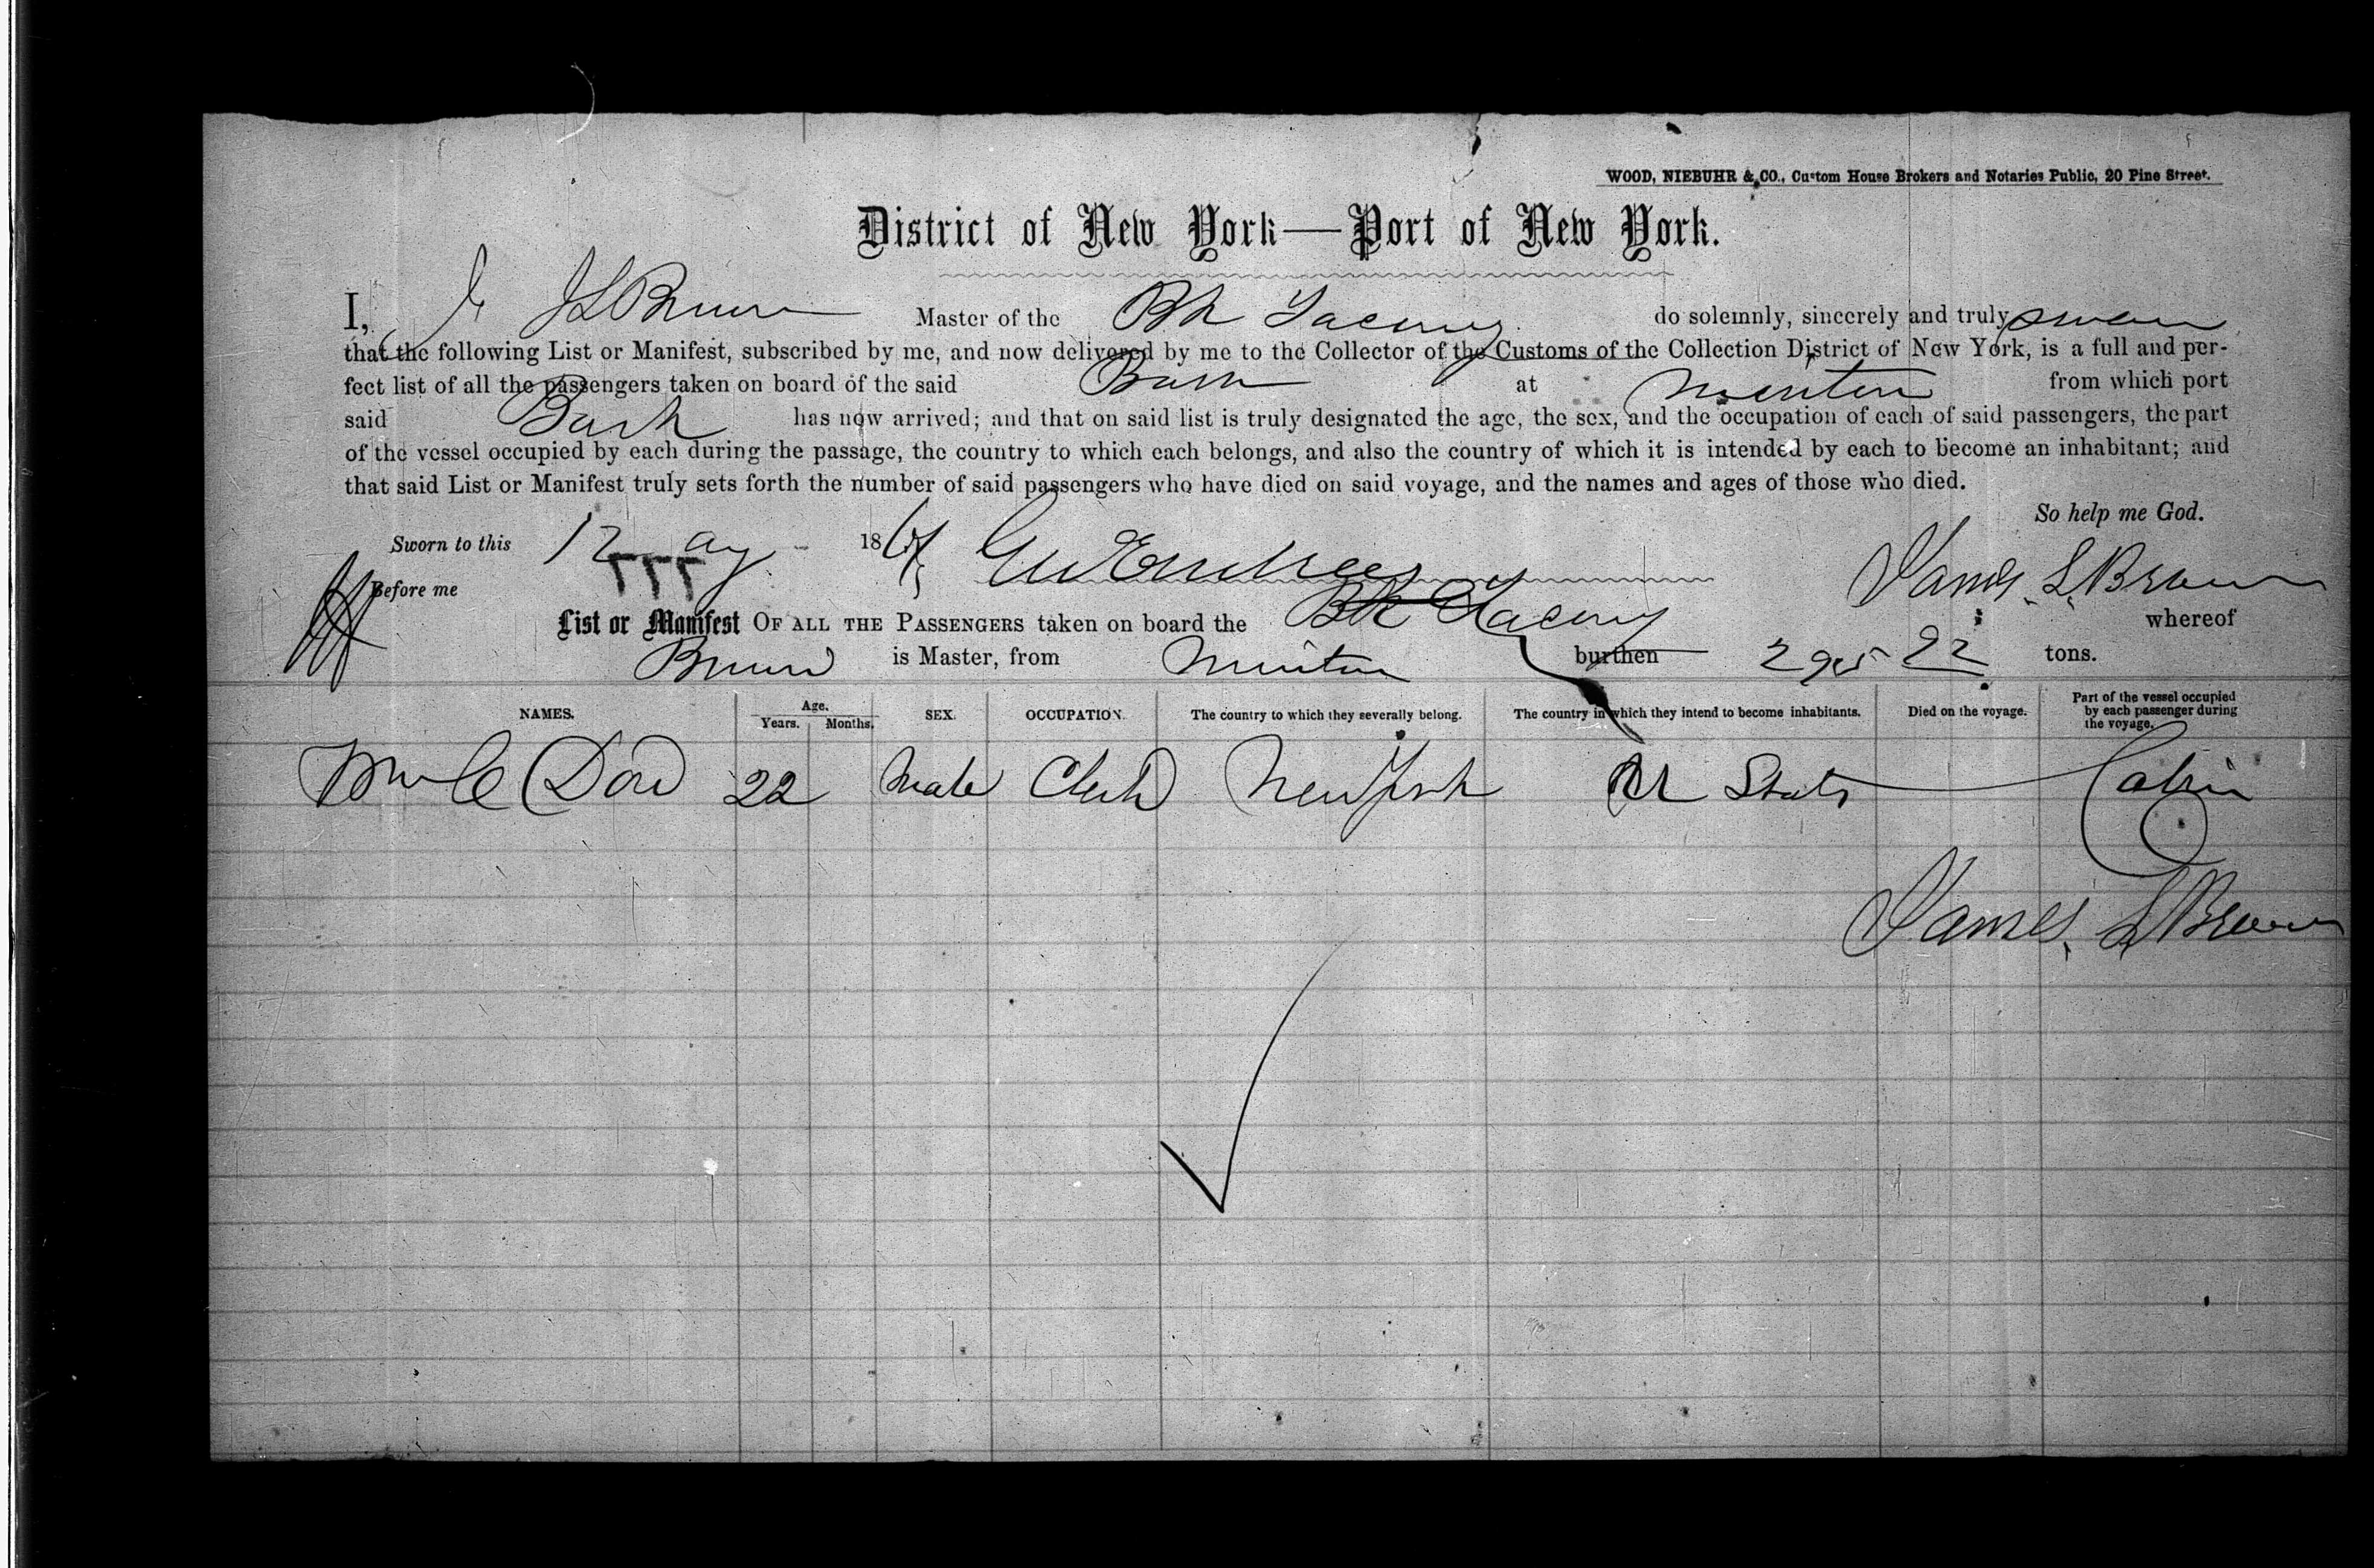 WOOD, NIEBUHR & CO., Custom House Brokers and Notaries Public, 20 Pine Street.
District of New York—Port of New York.
I, J L Brown Master of the Bk do solemnly, sincerely and truly swear
that the following List or Manifest, subscribed by me, and now delivered by me to the Collector of the Customs of the Collection District of New York, is a full and per-
fect list of all the passengers taken on board of the said Bark at from which port
said Bark has now arrived; and that on said list is truly designated the age, the sex, and the occupation of each of said passengers, the part
of the vessel occupied by each during the passage, the country to which each belongs, and also the country of which it is intended by each to become an inhabitant; and
that said List or Manifest truly sets forth the number of said passengers who have died on said voyage, and the names and ages of those who died.
So help me God.
Sworn to this 12 Aug 186
James L Brown
Before me
777
List or Manifest OF ALL THE PASSENGERS taken on board the Bk whereof
Brown is Master, from burthen tons.
NAMES. Age. Years. Months. SEX. OCCUPATION. The country to which they severally belong. The country in which they intend to become inhabitants. Died on the voyage. Part of the vessel occupied by each passenger during the voyage.
Wm C Dow 22 Male Clerk New York U States Cabin
James L Brown